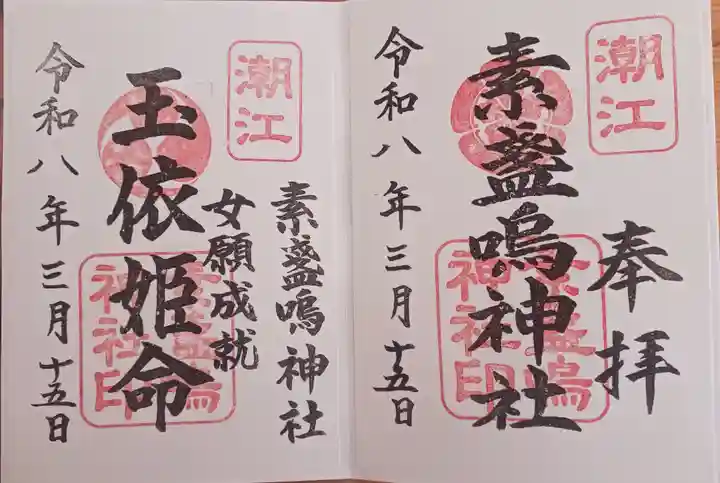 潮江
奉拝
素盞嗚神社
素盞嗚
神社印
令和八年三月十五日
潮江
素盞嗚神社
女願成就
玉依姫命
素盞嗚
神社印
令和八年三月十五日